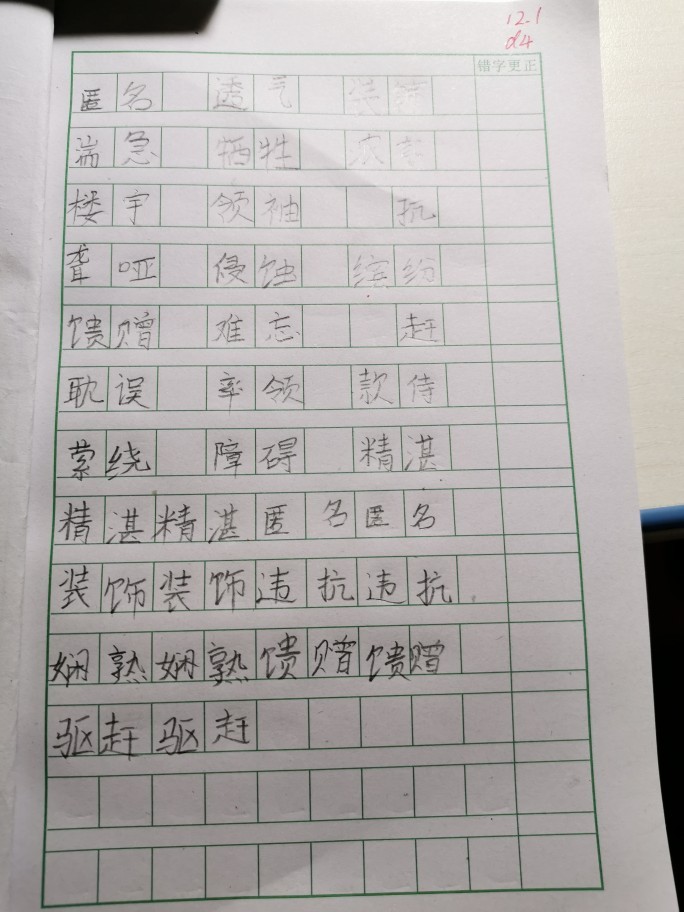 12.1
错字更正
匿名 透气 装饰
湍急 牺牲
楼宇 领袖 抗
聋哑 侵蚀 缤纷
馈赠 难忘 赶
耽误 率领 款待
萦绕 障碍 精湛
精湛精湛匿名匿名
装饰装饰违抗违抗
娴熟娴熟馈赠馈赠
驱赶驱赶